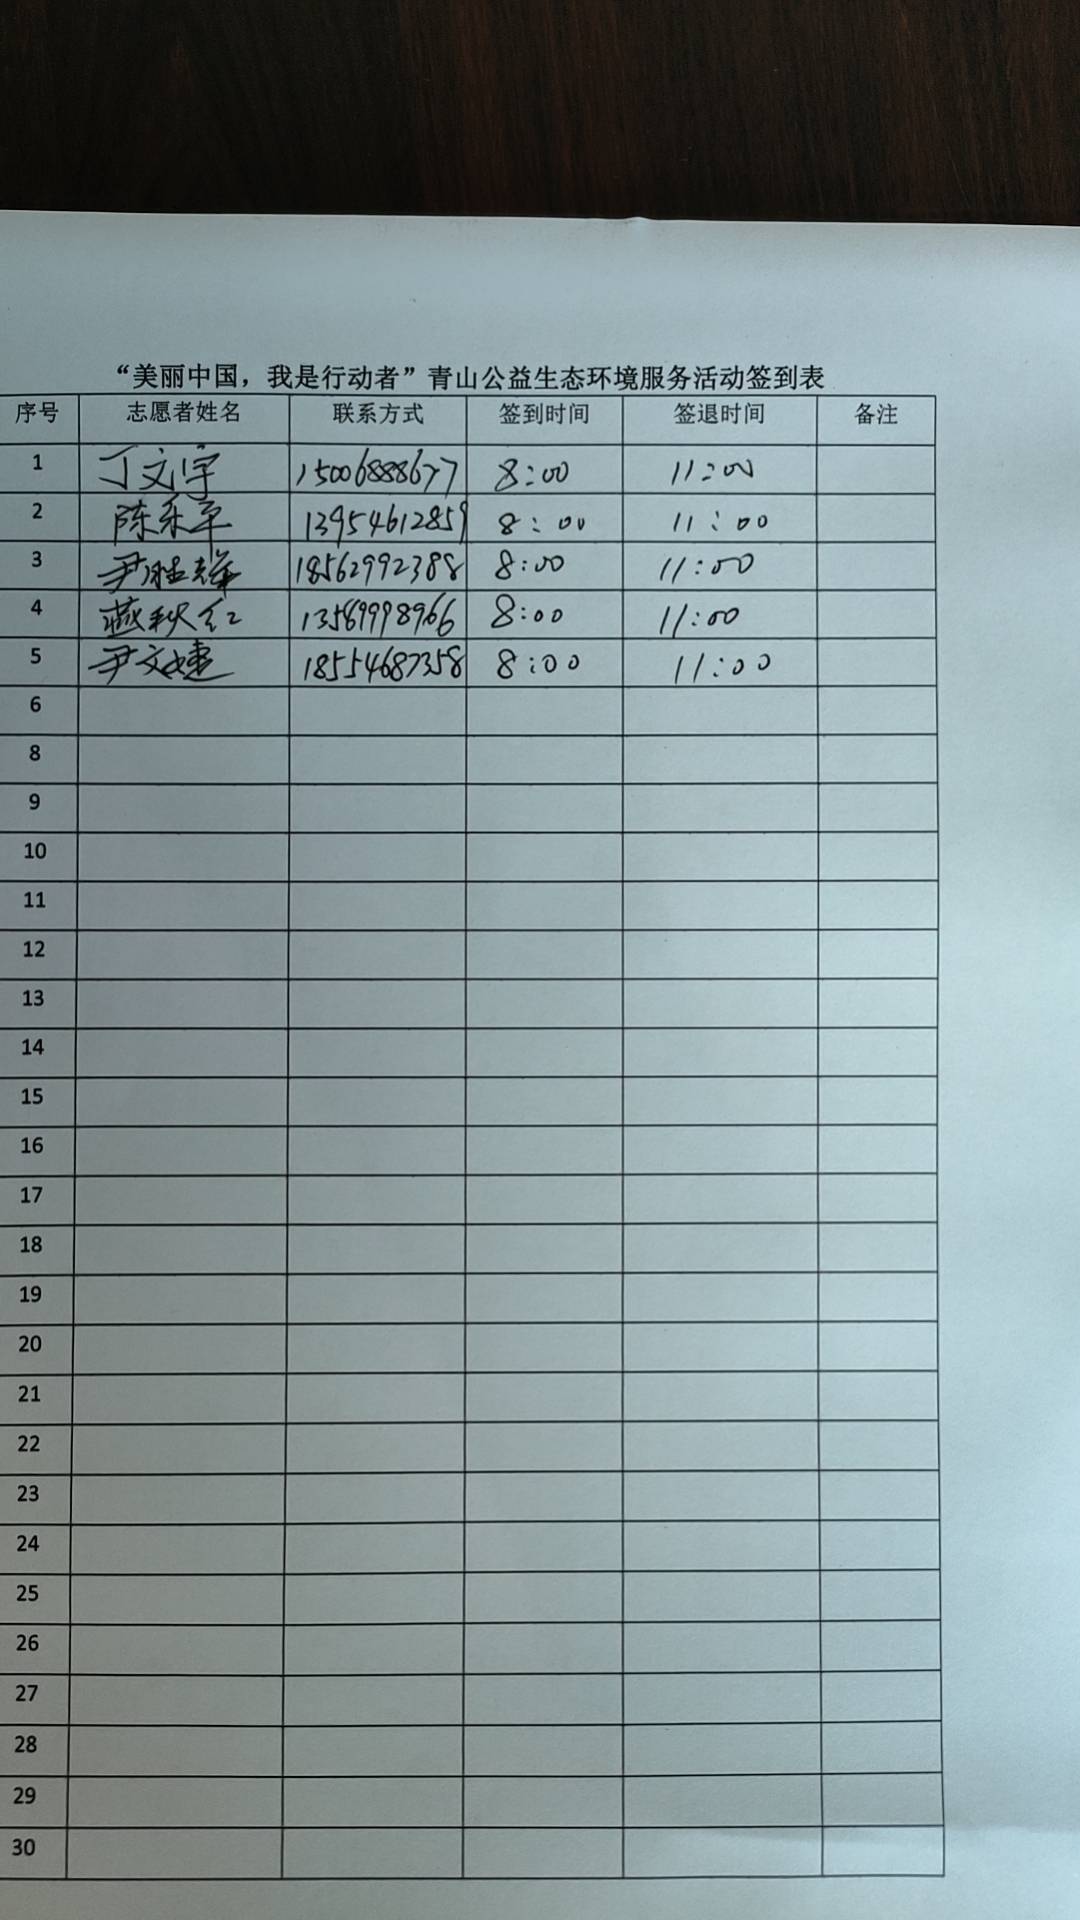 “美丽中国，我是行动者”青山公益生态环境服务活动签到表
序号 志愿者姓名 联系方式 签到时间 签退时间 备注
1 丁文宇 15006888677 8:00 11:00
2 陈乐平 13954612859 8:00 11:00
3 尹胜 18562992388 8:00 11:00
4 燕秋红 13589998966 8:00 11:00
5 尹文婕 18554687358 8:00 11:00
6
8
9
10
11
12
13
14
15
16
17
18
19
20
21
22
23
24
25
26
27
28
29
30